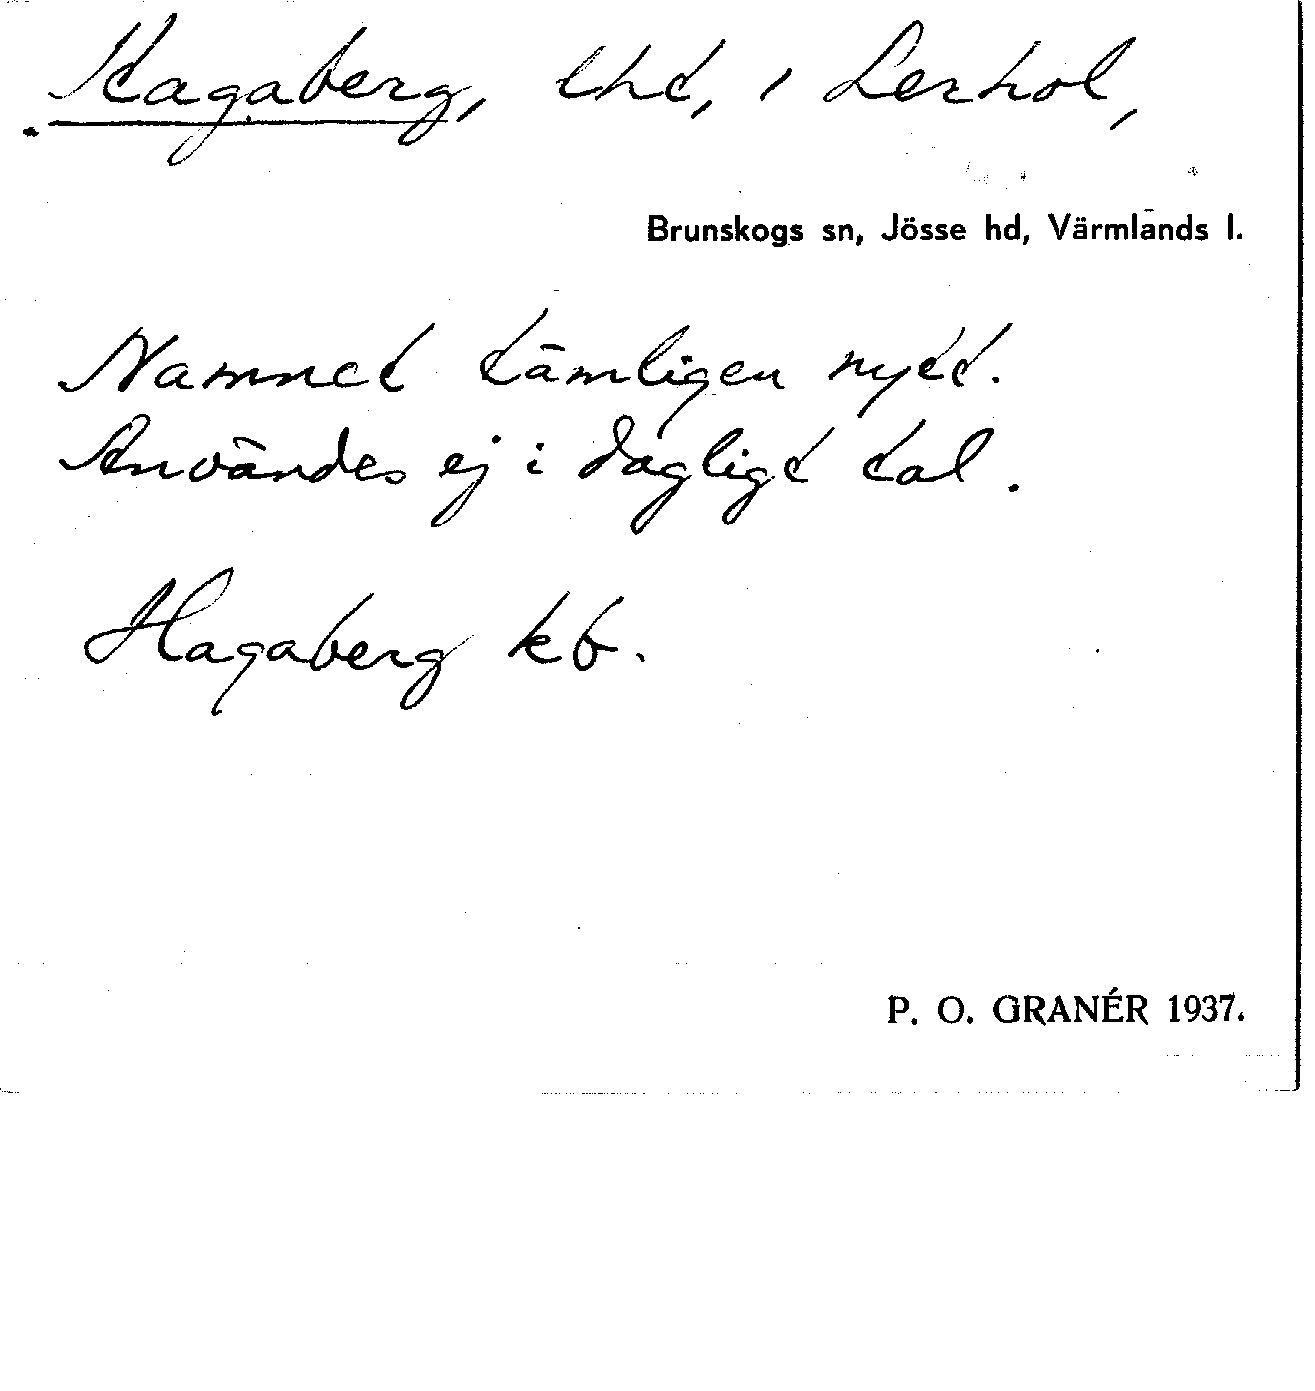 Hagaberg, lht, i Lerhol,
Brunskogs sn, Jösse hd, Värmlands l.
Namnet tämligen nytt.
Användes ej i dagligt tal.
Hagaberg kb.
P. O. GRANÉR 1937.